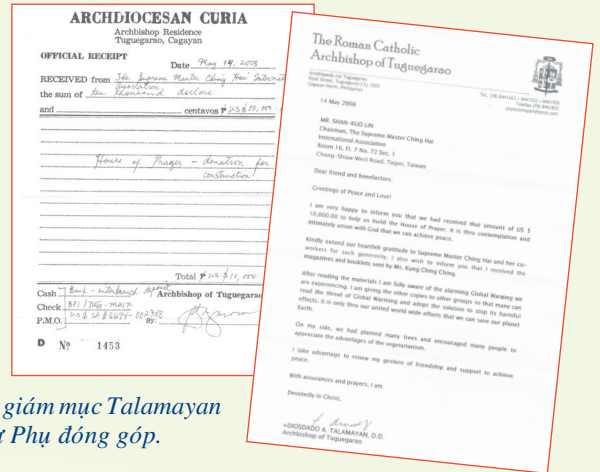 ARCHDIOCESAN CURIA
Archbishop Residence
Tuguegarao, Cagayan
OFFICIAL RECEIPT
Date May 14, 2008
RECEIVED from The Supreme Master Ching Hai Internat
Association
the sum of ten thousand dollars
and centavos ₱ US $10,000
House of Prayer - donation for
construction
Total ₱ US $10,000
Cash Bank - interbranch deposit
Archbishop of Tuguegarao
Check BPI / TUG - main
P.M.O. By:
D Nº 1453
The Roman Catholic
Archbishop of Tuguegarao
14 May 2008
MR. SHAN-KUO LIN
Chairman, The Supreme Master Ching Hai
International Association
Room 16, Fl. 7 No. 72 Sec. 1
Chung-Shiaw West Road, Taipei, Taiwan
Dear friend and Benefactors:
Greetings of Peace and Love!
I am very happy to inform you that we had received that amount of US $
10,000.00 to help us build the House of Prayer. It is thru contemplation and
intimately union with God that we can achieve peace.
Kindly extend our heartfelt gratitude to Supreme Master Ching Hai and her co-
workers for such generosity. I also wish to inform you that I received the
magazines and booklets sent by Ms. Kung Ching Ching.
After reading the materials I am fully aware of the alarming Global Warming we
are experiencing. I am giving the other copies to other groups so that many can
read the threat of Global Warming and adopt the solution to stop its harmful
effects. It is only thru our united world wide efforts that we can save our planet
Earth.
On my side, we had planted many trees and encouraged many people to
appreciate the advantages of the vegetarianism.
I take advantage to renew my gesture of friendship and support to achieve
peace.
With assurances and prayers, I am
Devotedly in Christ,
+DIOSDADO A. TALAMAYAN, D.D.
Archbishop of Tuguegarao
giám mục Talamayan
Phụ đóng góp.